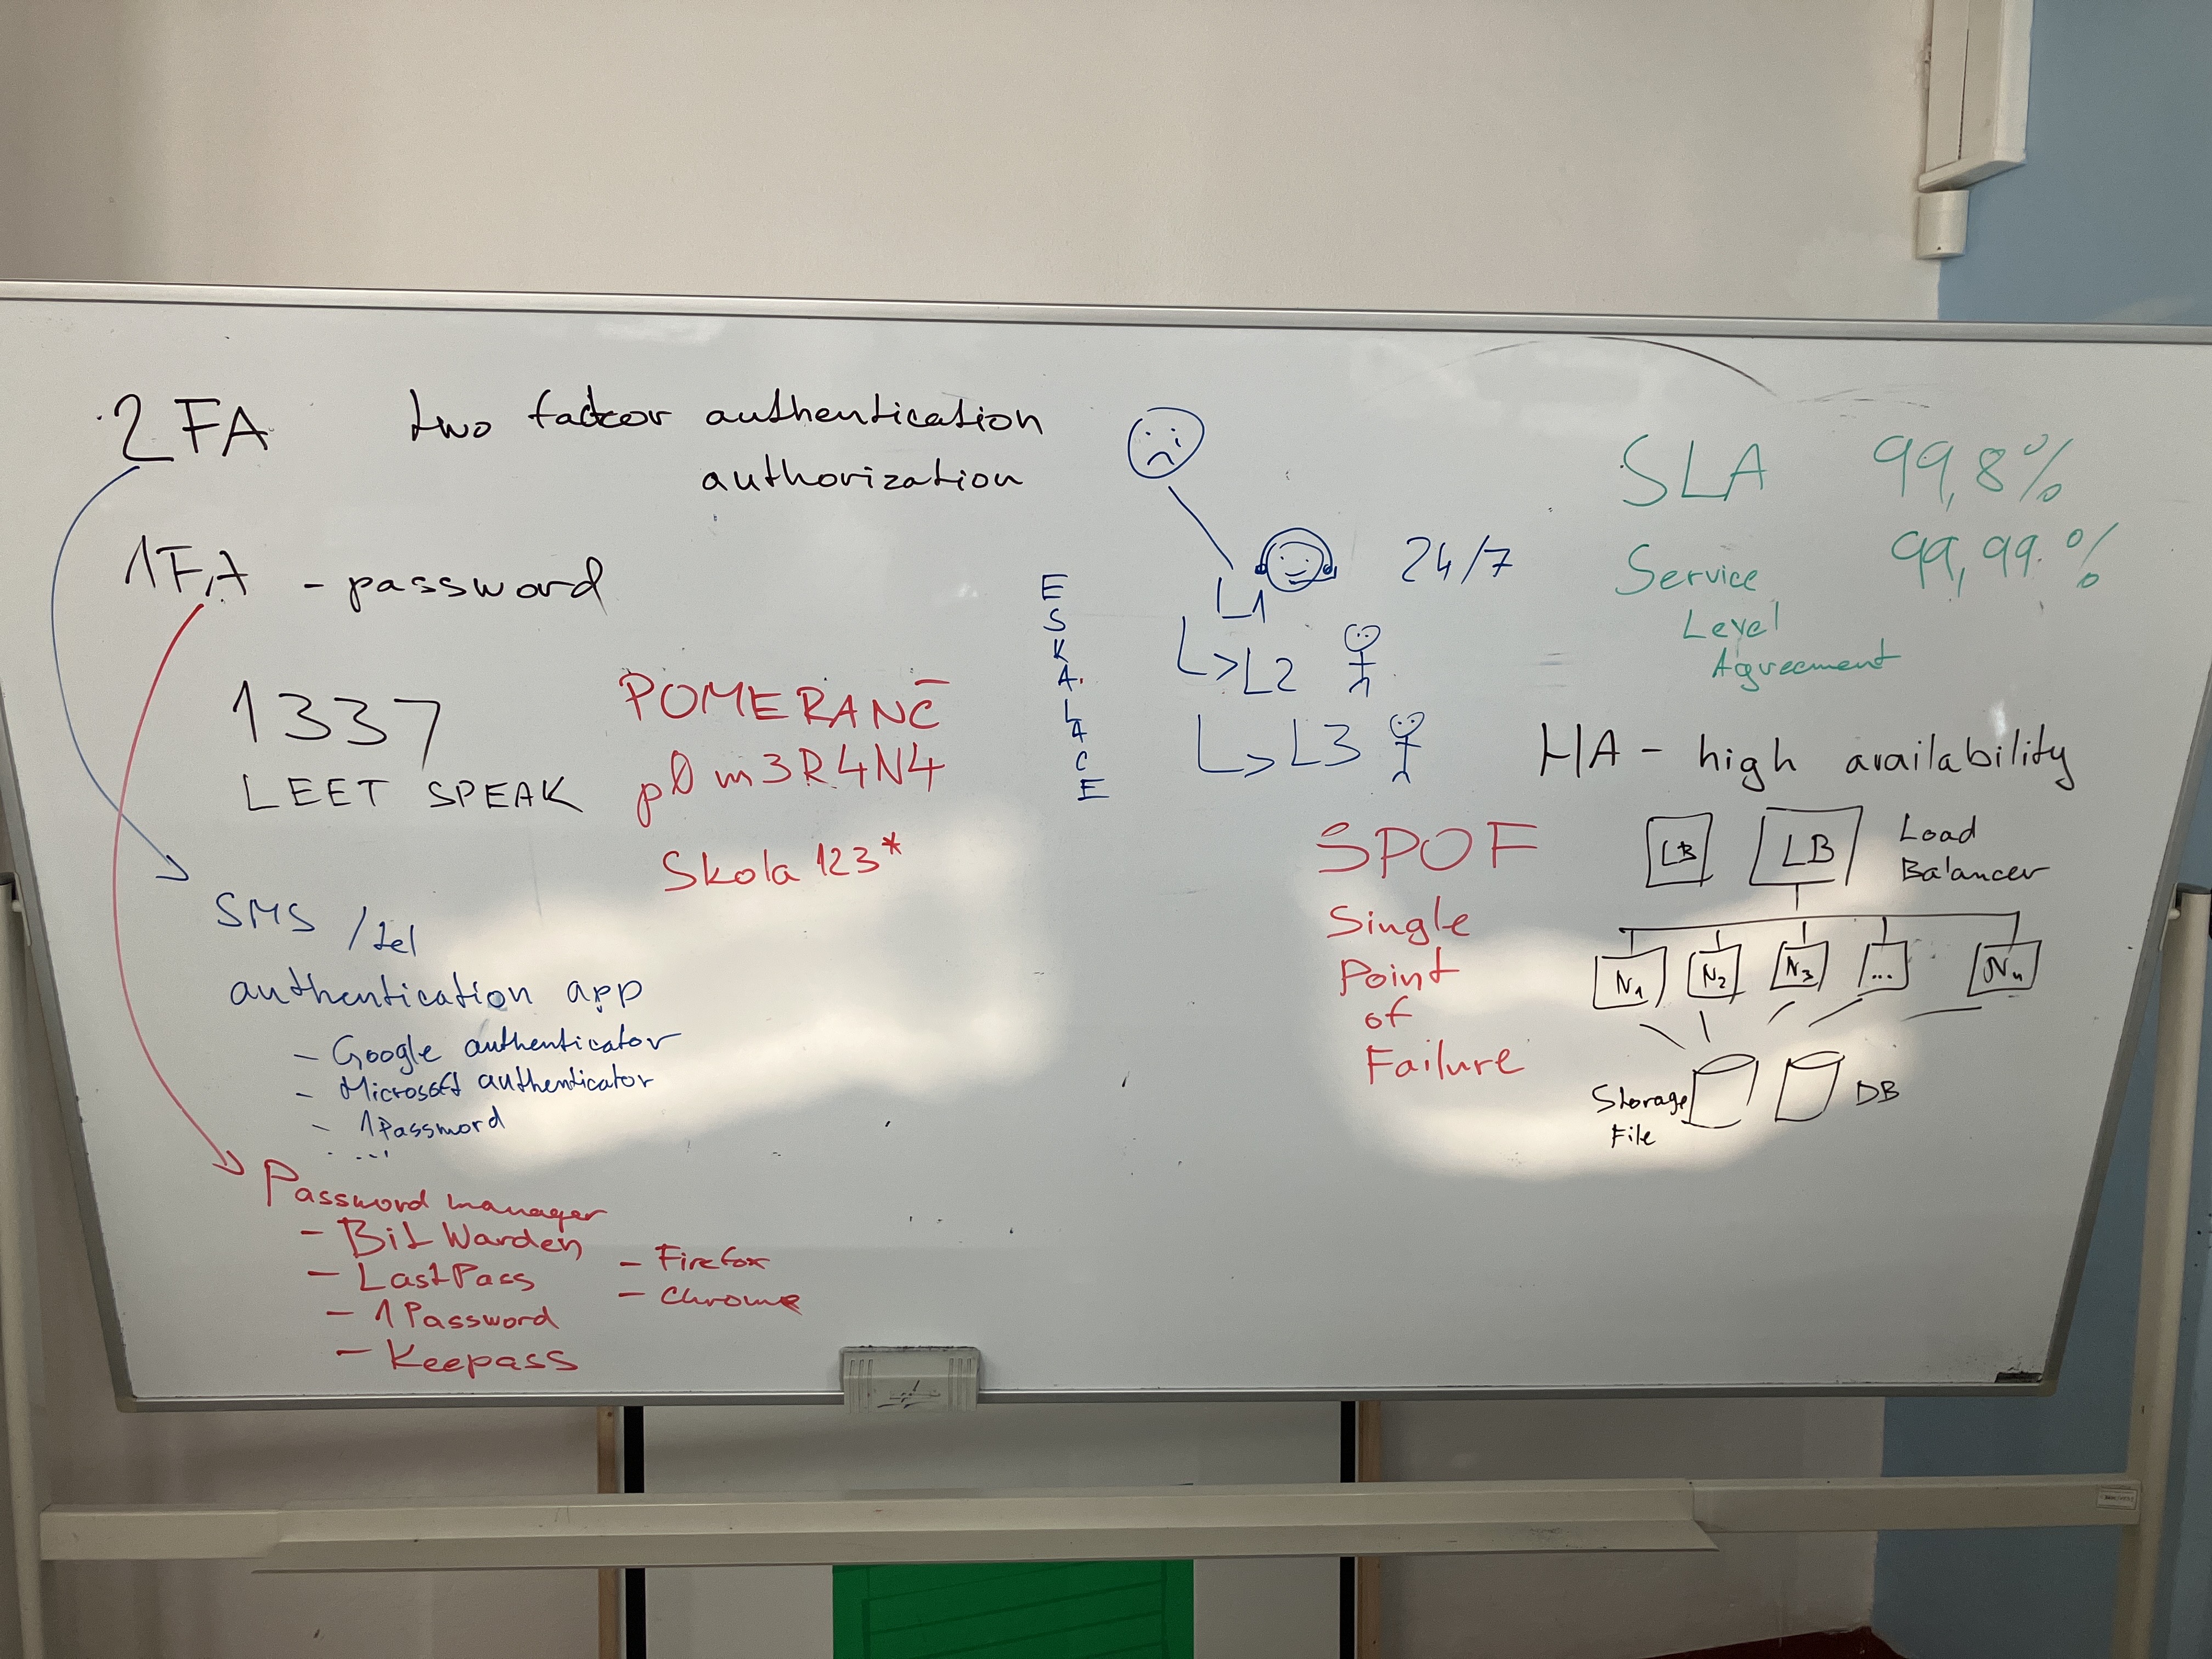 2FA two factor authentication
authorization
1FA - password
1337
LEET SPEAK
POMERANČ
p0m3R4N4
Skola 123*
SMS / tel
authentication app
- Google authenticator
- Microsoft authenticator
- 1Password
...
Password manager
- BitWarden
- LastPass
- 1Password
- Keepass
- Firefox
- Chrome
ESKALACE
L1
24/7
L2
L3
SLA 99,8%
99,99%
Service
Level
Agreement
HA - high availability
SPOF
Single
Point
of
Failure
LB LB Load
Balancer
N1 N2 N3 ... Nn
Storage
File
DB